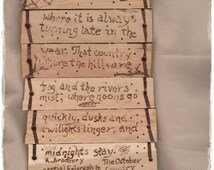 where it is always
turning late in the
year. That country
where the hills are
fog and the rivers
mist; where noons go
quickly, dusks and
twilights linger, and
midnights stay.
R. Bradbury The October
Country